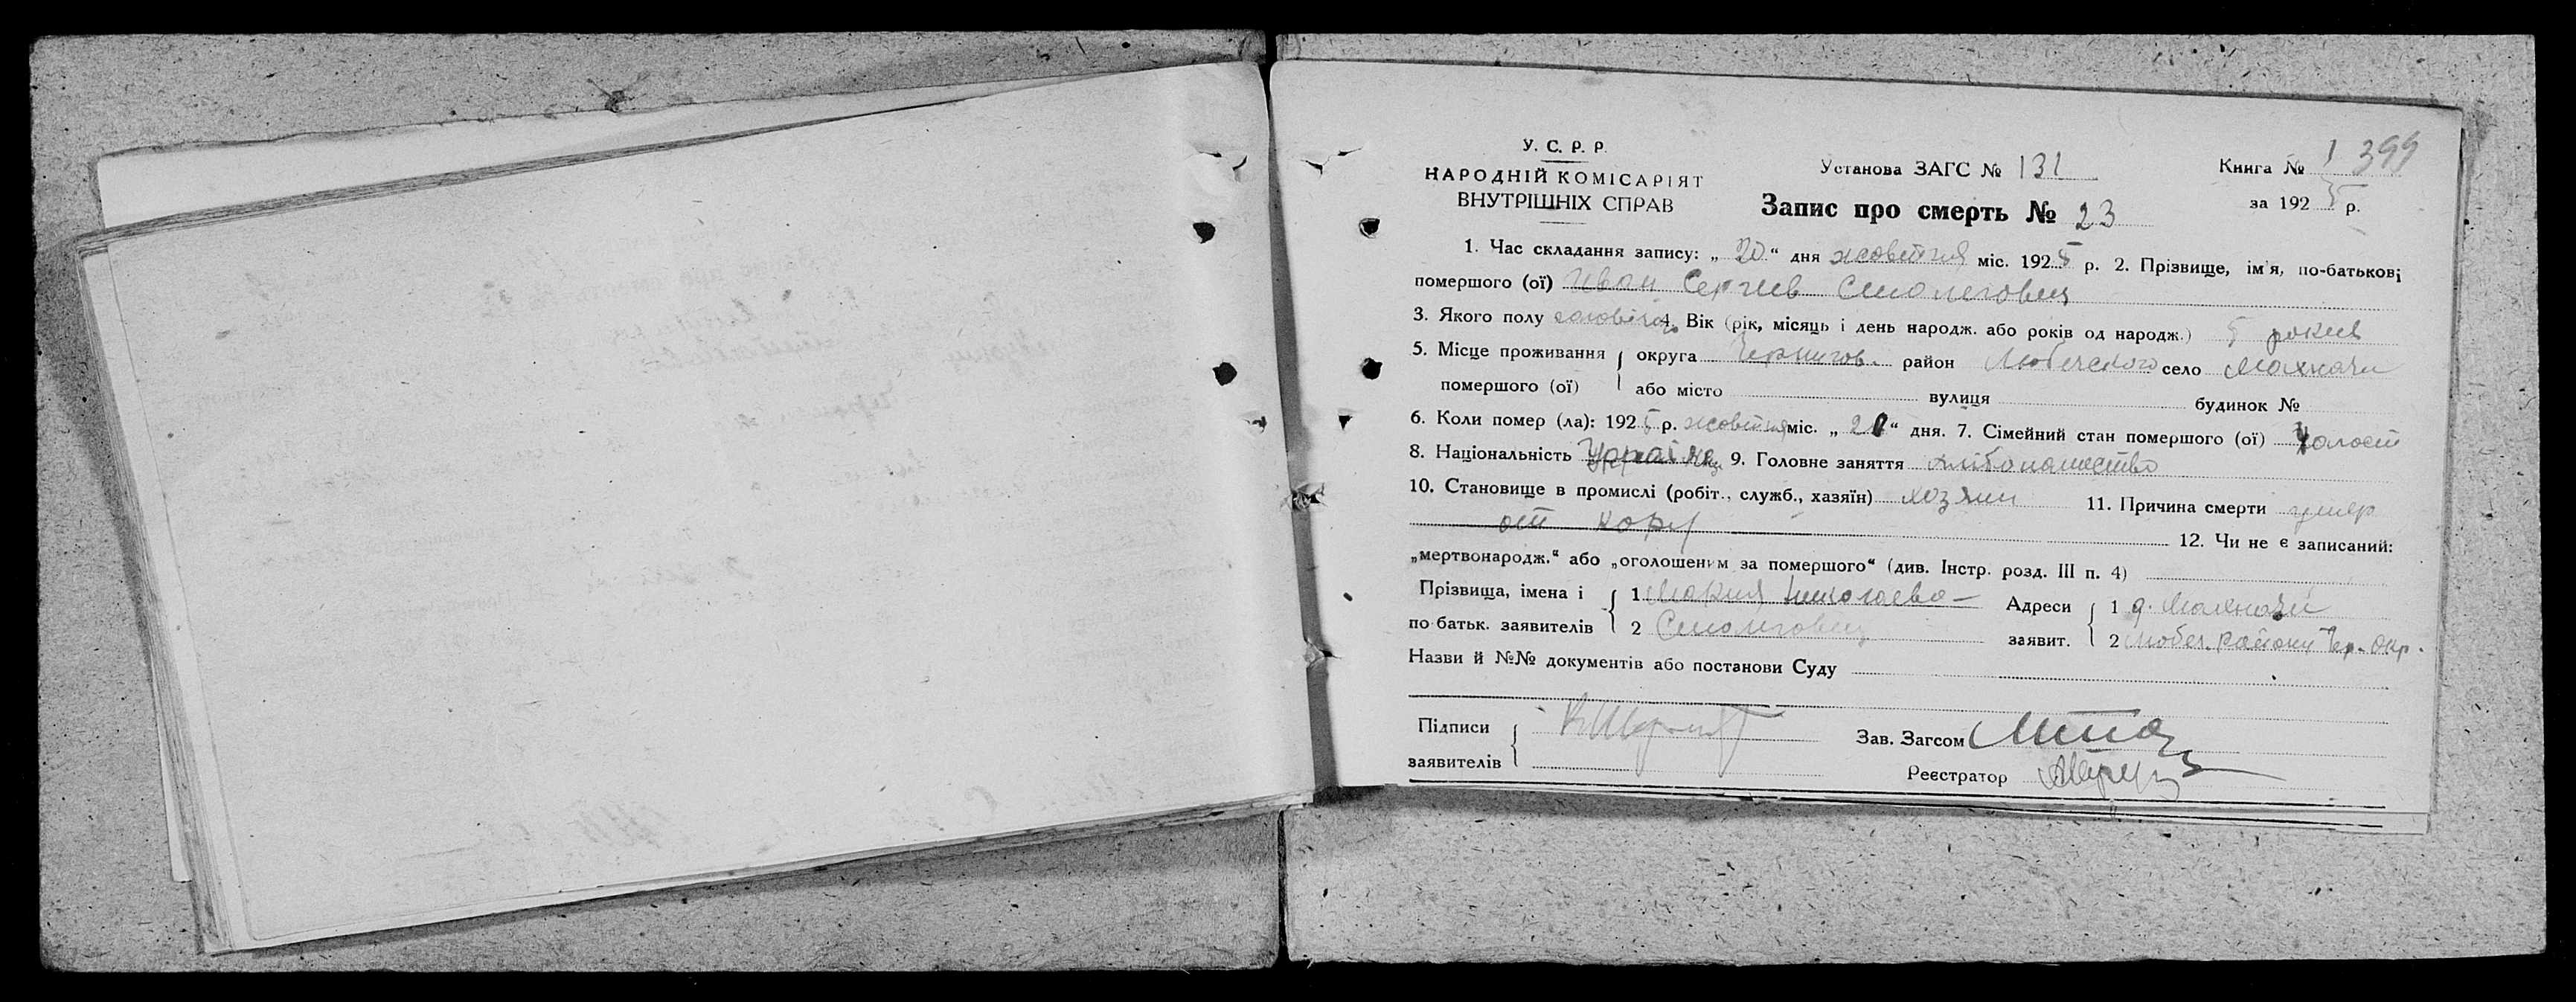 У. С. Р. Р.
НАРОДНІЙ КОМІСАРІЯТ
ВНУТРІШНІХ СПРАВ
Установа ЗАГС № 131
Книга № 1 399
за 1925 р.
Запис про смерть № 23
1. Час складання запису: „20“ дня жовтня міс. 1925 р. 2. Прізвище, ім'я, по-батькові
помершого (ої) Иван Сергиев
3. Якого полу 4. Вік (рік, місяць і день народж. або років од народж.) 5 рокив
5. Місце проживання помершого (ої) округа Чернигов. район Любечского село Махначи
або місто вулиця будинок №
6. Коли помер (ла): 1925 р. жовтня міс. „20“ дня. 7. Сімейний стан помершого (ої) Холост
8. Національність 9. Головне заняття
10. Становище в промислі (робіт., служб., хазяїн) хозяин 11. Причина смерти умер
от кору 12. Чи не є записаний:
„мертвонародж.“ або „оголошеним за помершого“ (див. Інстр. розд. III п. 4)
Прізвища, імена і по батьк. заявителів 1 Мария Николаева
2
Адреси заявит. 1 д. Махначи
2 Любеч. району Чер. Окр.
Назви й №№ документів або постанови Суду
Підписи заявителів
Зав. Загсом
Реєстратор